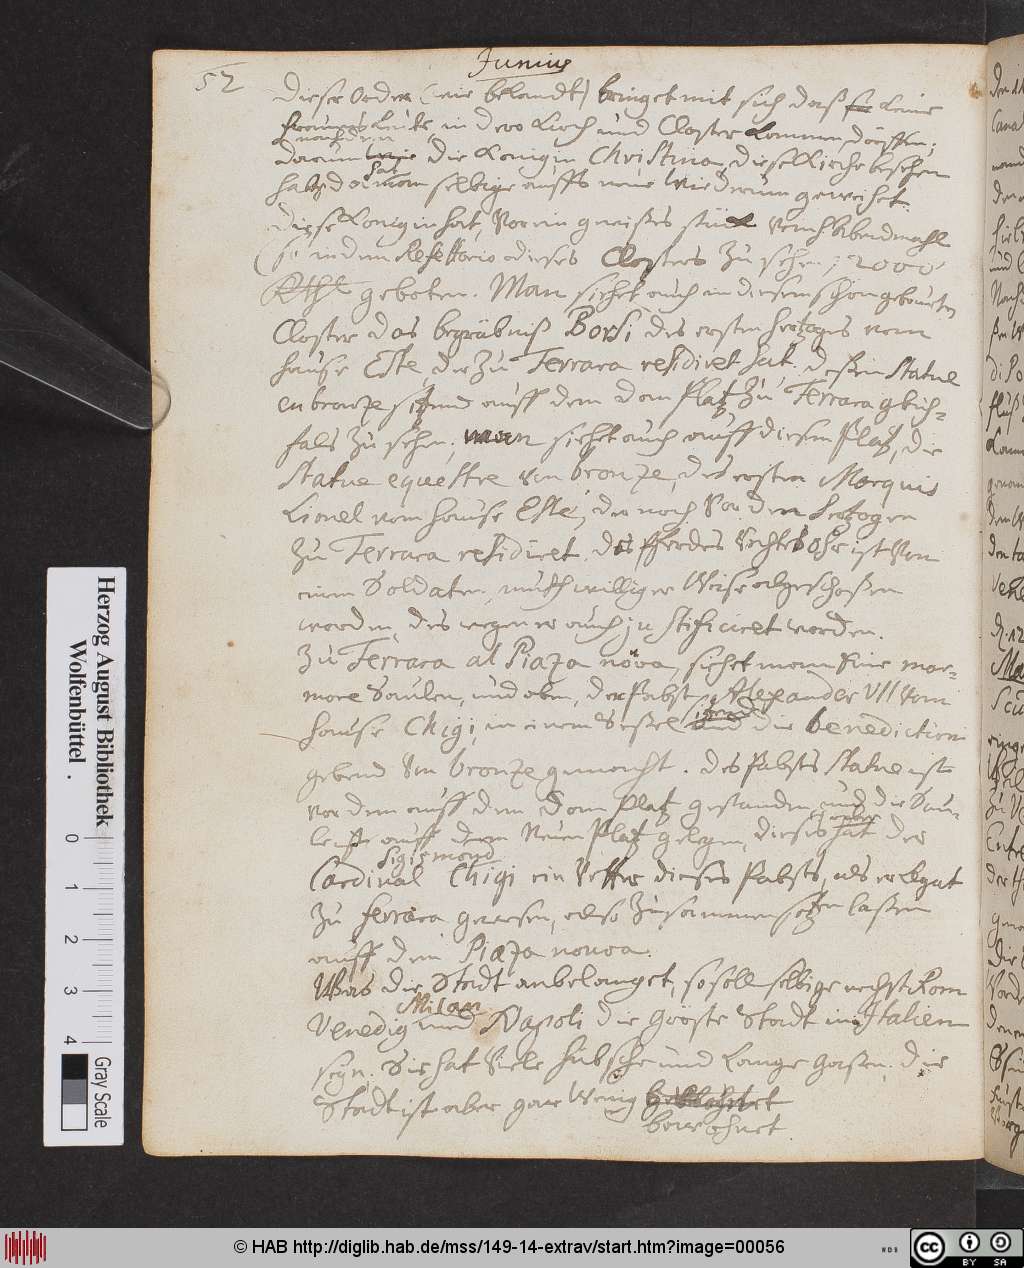 52
Junius
dieser Orden (wie bekandt) bringet mit sich daß keine
frauens Leute in dero Kirch und Closter kommen dörffen;
nachdem
darum die Königin Christina, diese Kirche besehen
hat
hat man selbige auffs neue wiedrum geweihet.
diese Königin hat, vor ein gewißes stück vom h. Abendmahl
(so in dem Refettorio dieses Closters zu sehen; 2000
Rthl geboten. Man siehet auch in diesem schön gebaueten
Closter das begräbniß Borsi des ersten Hertzoges vom
hause Este, der zu Ferrara residiret hat. deßen Statue
en bronze sitzend auff dem dom Platz zu Ferrara gleich-
fals zu sehen; man siehet auch auff diesem Platz, die
Statue equestre von bronze, des ersten Marquis
Lionel vom hause Este, der noch vor den Hertzogen
zu Ferrara residiret. des Pferdes rechtes Ohr ist von
einem Soldaten, muthwilliger Weise abgeschoßen
worden, deswegen er auch justificiret worden.
Zu Ferrara al Piaza nova, siehet man eine mar-
more Saulen, und oben, der Pabst Alexander VII vom
hause Chigi, in einem Seßel die benediction
gebend von bronze gemacht. des Pabsts Statue ist
vor dem auff dem Dom Platz gestanden und die Sau-
le ist auff dem Neuen Platz gelegen, dieses hat der
Sigismond
Cardinal Chigi ein Vetter dieses Pabsts, als er legat
zu ferrara gewesen, also zusammensetzen laßen
auff dem Piaza nova.
Was die Stadt anbelanget, so soll selbige nechst Rom
Milan
Venedig und Napoli die gröste Stadt in Italien
seyn. Sie hat viele hübsche und lange Gaßen, die
Stadt ist aber gar wenig
bewohnet.
Herzog August Bibliothek
Wolfenbüttel
0 1 2 3 4
Gray Scale
© HAB http://diglib.hab.de/mss/149-14-extrav/start.htm?image=00056
WDB
cc BY SA